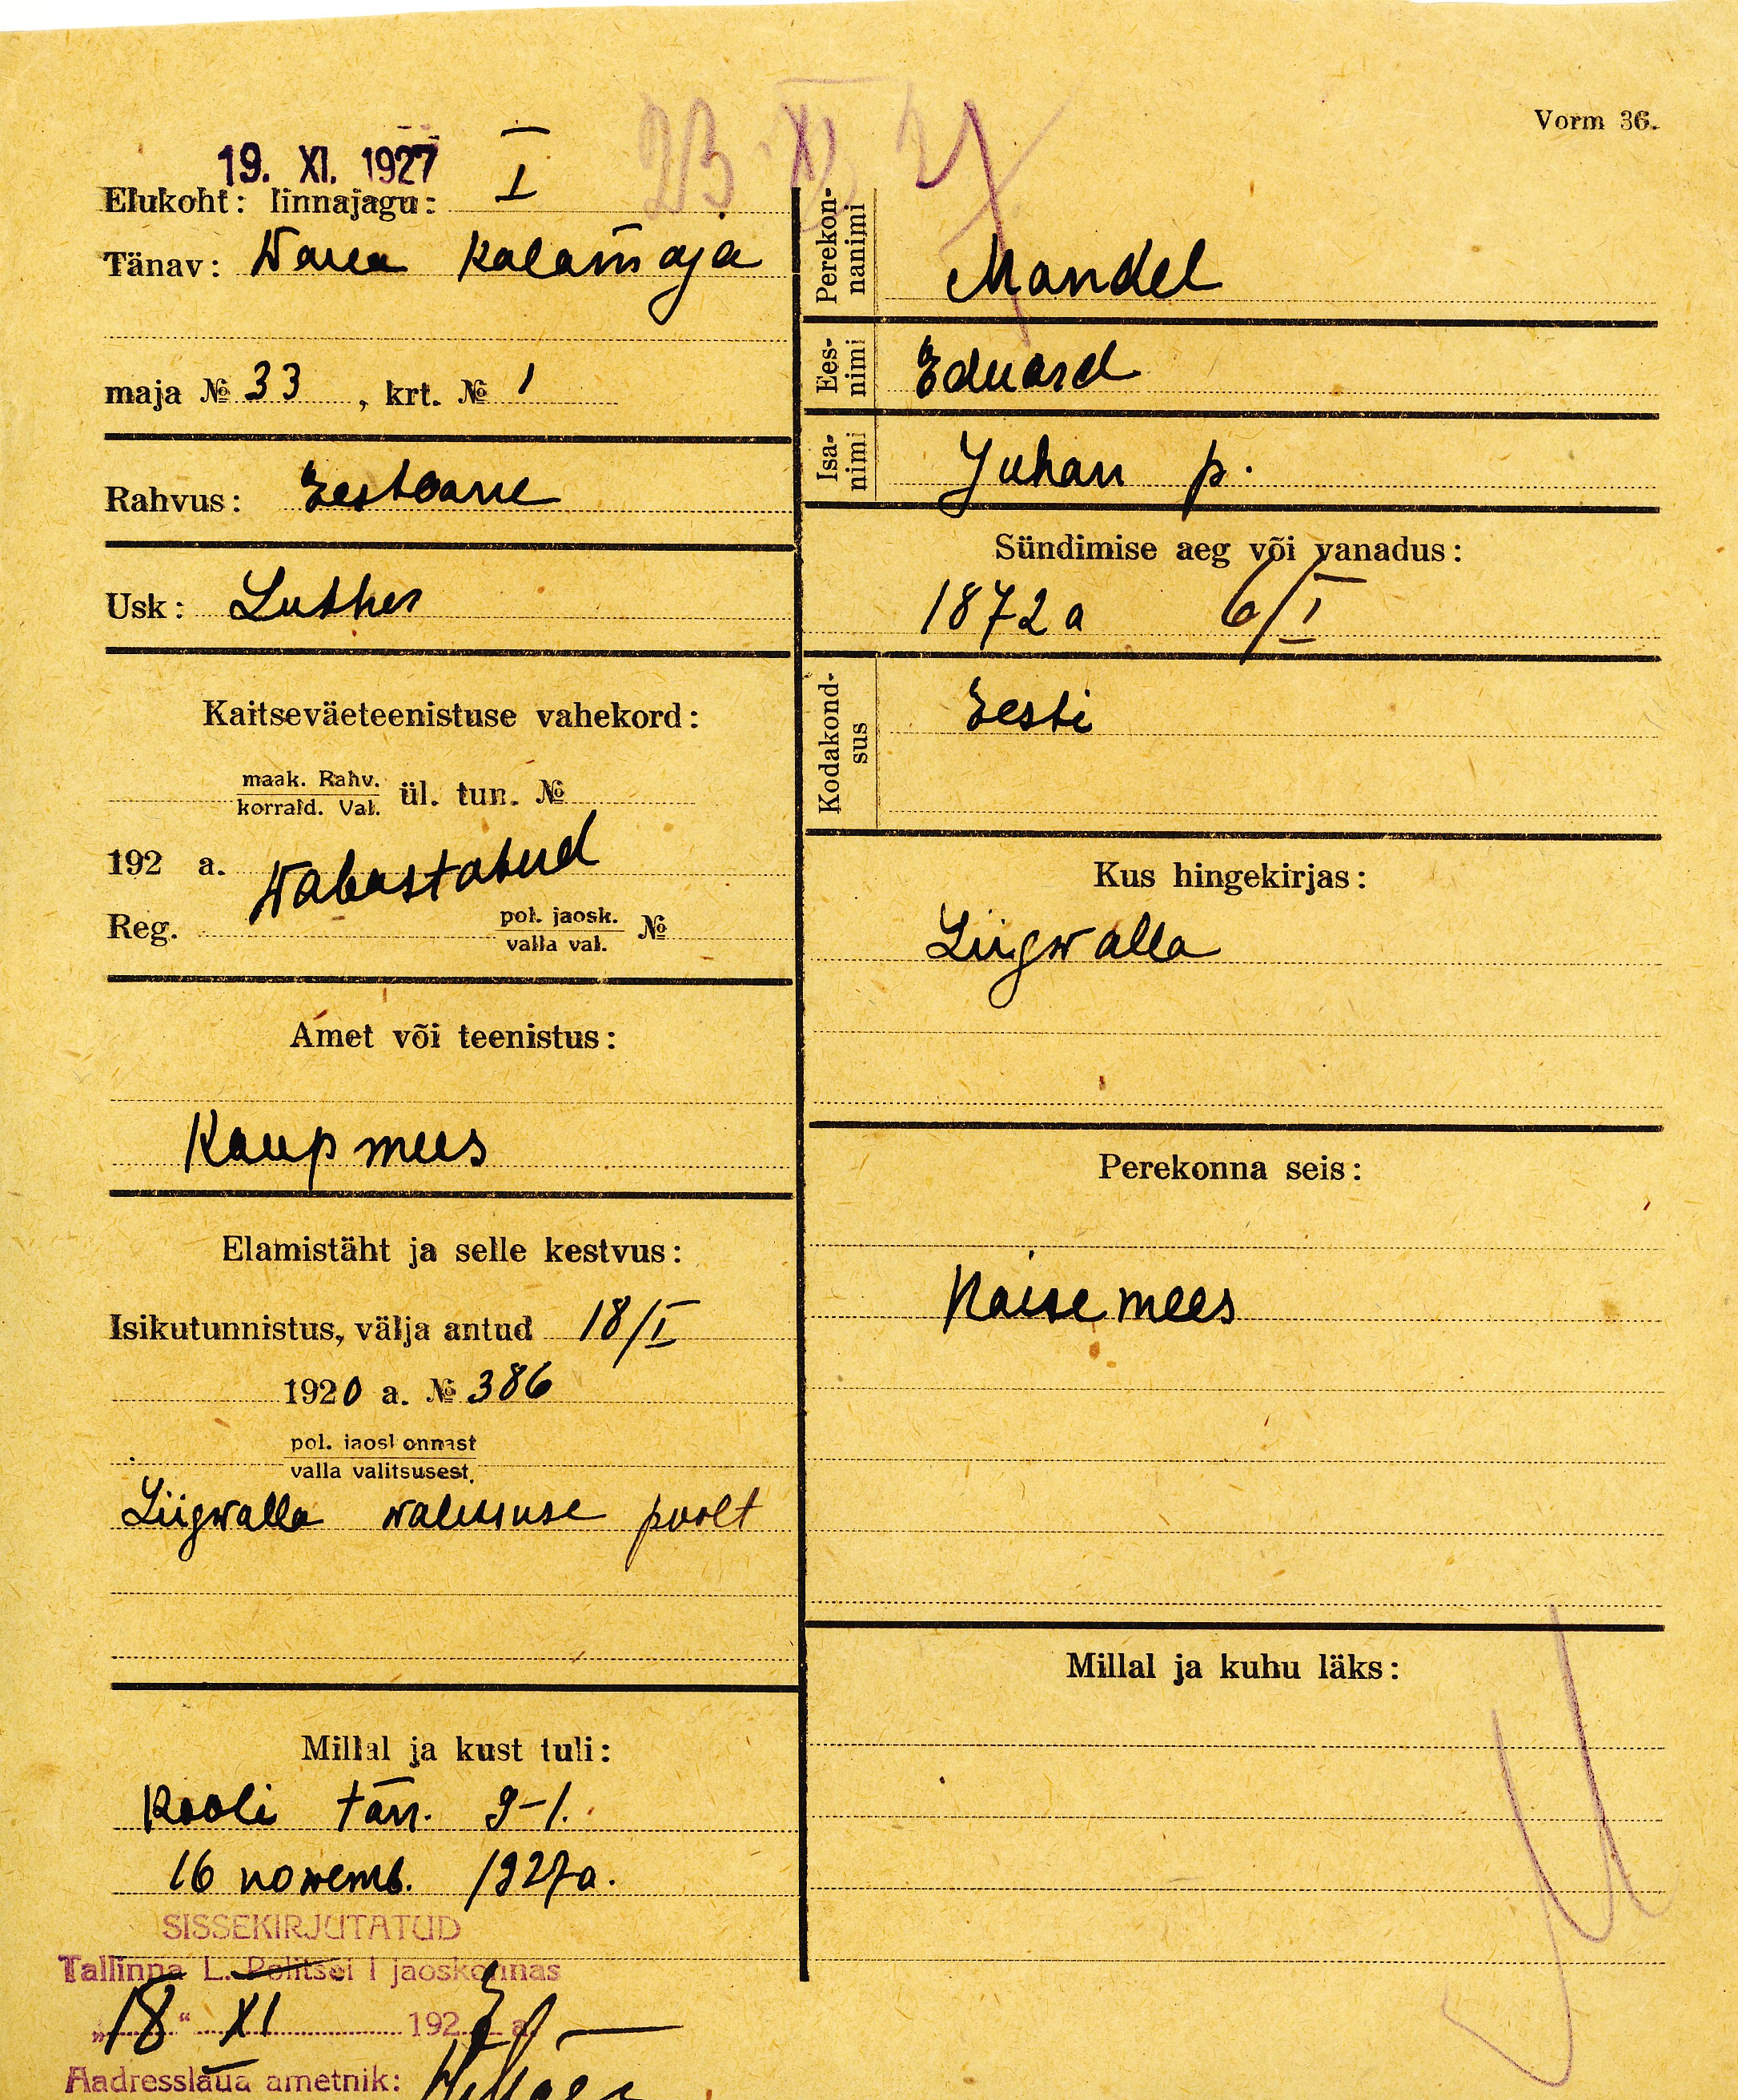 Vorm 36.
23 XI 27
19. XI. 1927
Elukoht: linnajagu: I
Tänav: Wana Kalamaja
maja № 33, krt. № 1
Rahvus: Eestlane
Usk: Luther
Kaitseväeteenistuse vahekord:
maak. Rahv.
korrald. Val. ül. tun. №
192 a. Wabastatud
Reg. pol. jaosk.
valla val. №
Amet või teenistus:
Kaupmees
Elamistäht ja selle kestvus:
Isikutunnistus, välja antud 18/I
1920 a. № 386
pol. jaoskonnast
valla valitsusest.
Liigwalla walitsuse poolt
Millal ja kust tuli:
Kooli tän. 9-1.
16 nowemb. 1927 a.
SISSEKIRJUTATUD
Tallinna L. Politsei I jaoskonnas
„18“ XI 1927 a.
Aadresslaua ametnik:
Perekonnanimi Mandel
Eesnimi Eduard
Isanimi Juhan p.
Sündimise aeg või vanadus:
1872 a 6/I
Kodakondsus Eesti
Kus hingekirjas:
Liigwalla
Perekonna seis:
Naisemees
Millal ja kuhu läks: